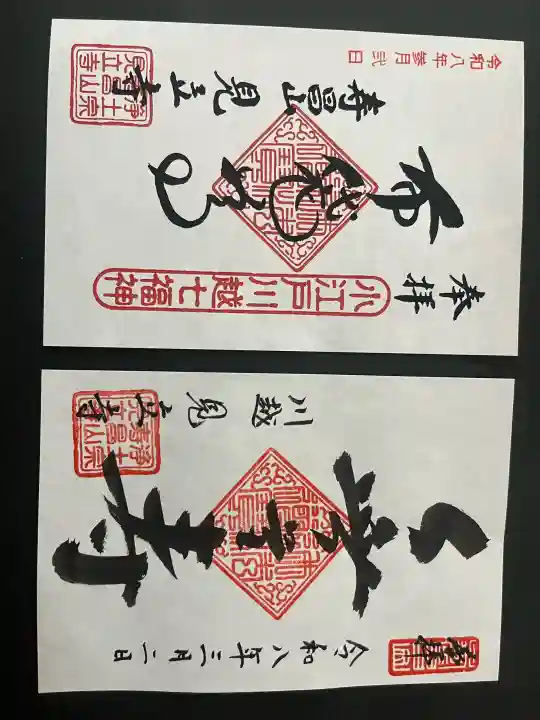 奉拝
小江戸川越七福神
布袋尊
寿昌山見立寺
令和八年参月弐日
浄土宗
寿昌山
見立寺
奉拝
令和八年三月二日
川越 見立寺
浄土宗
寿昌山
見立寺